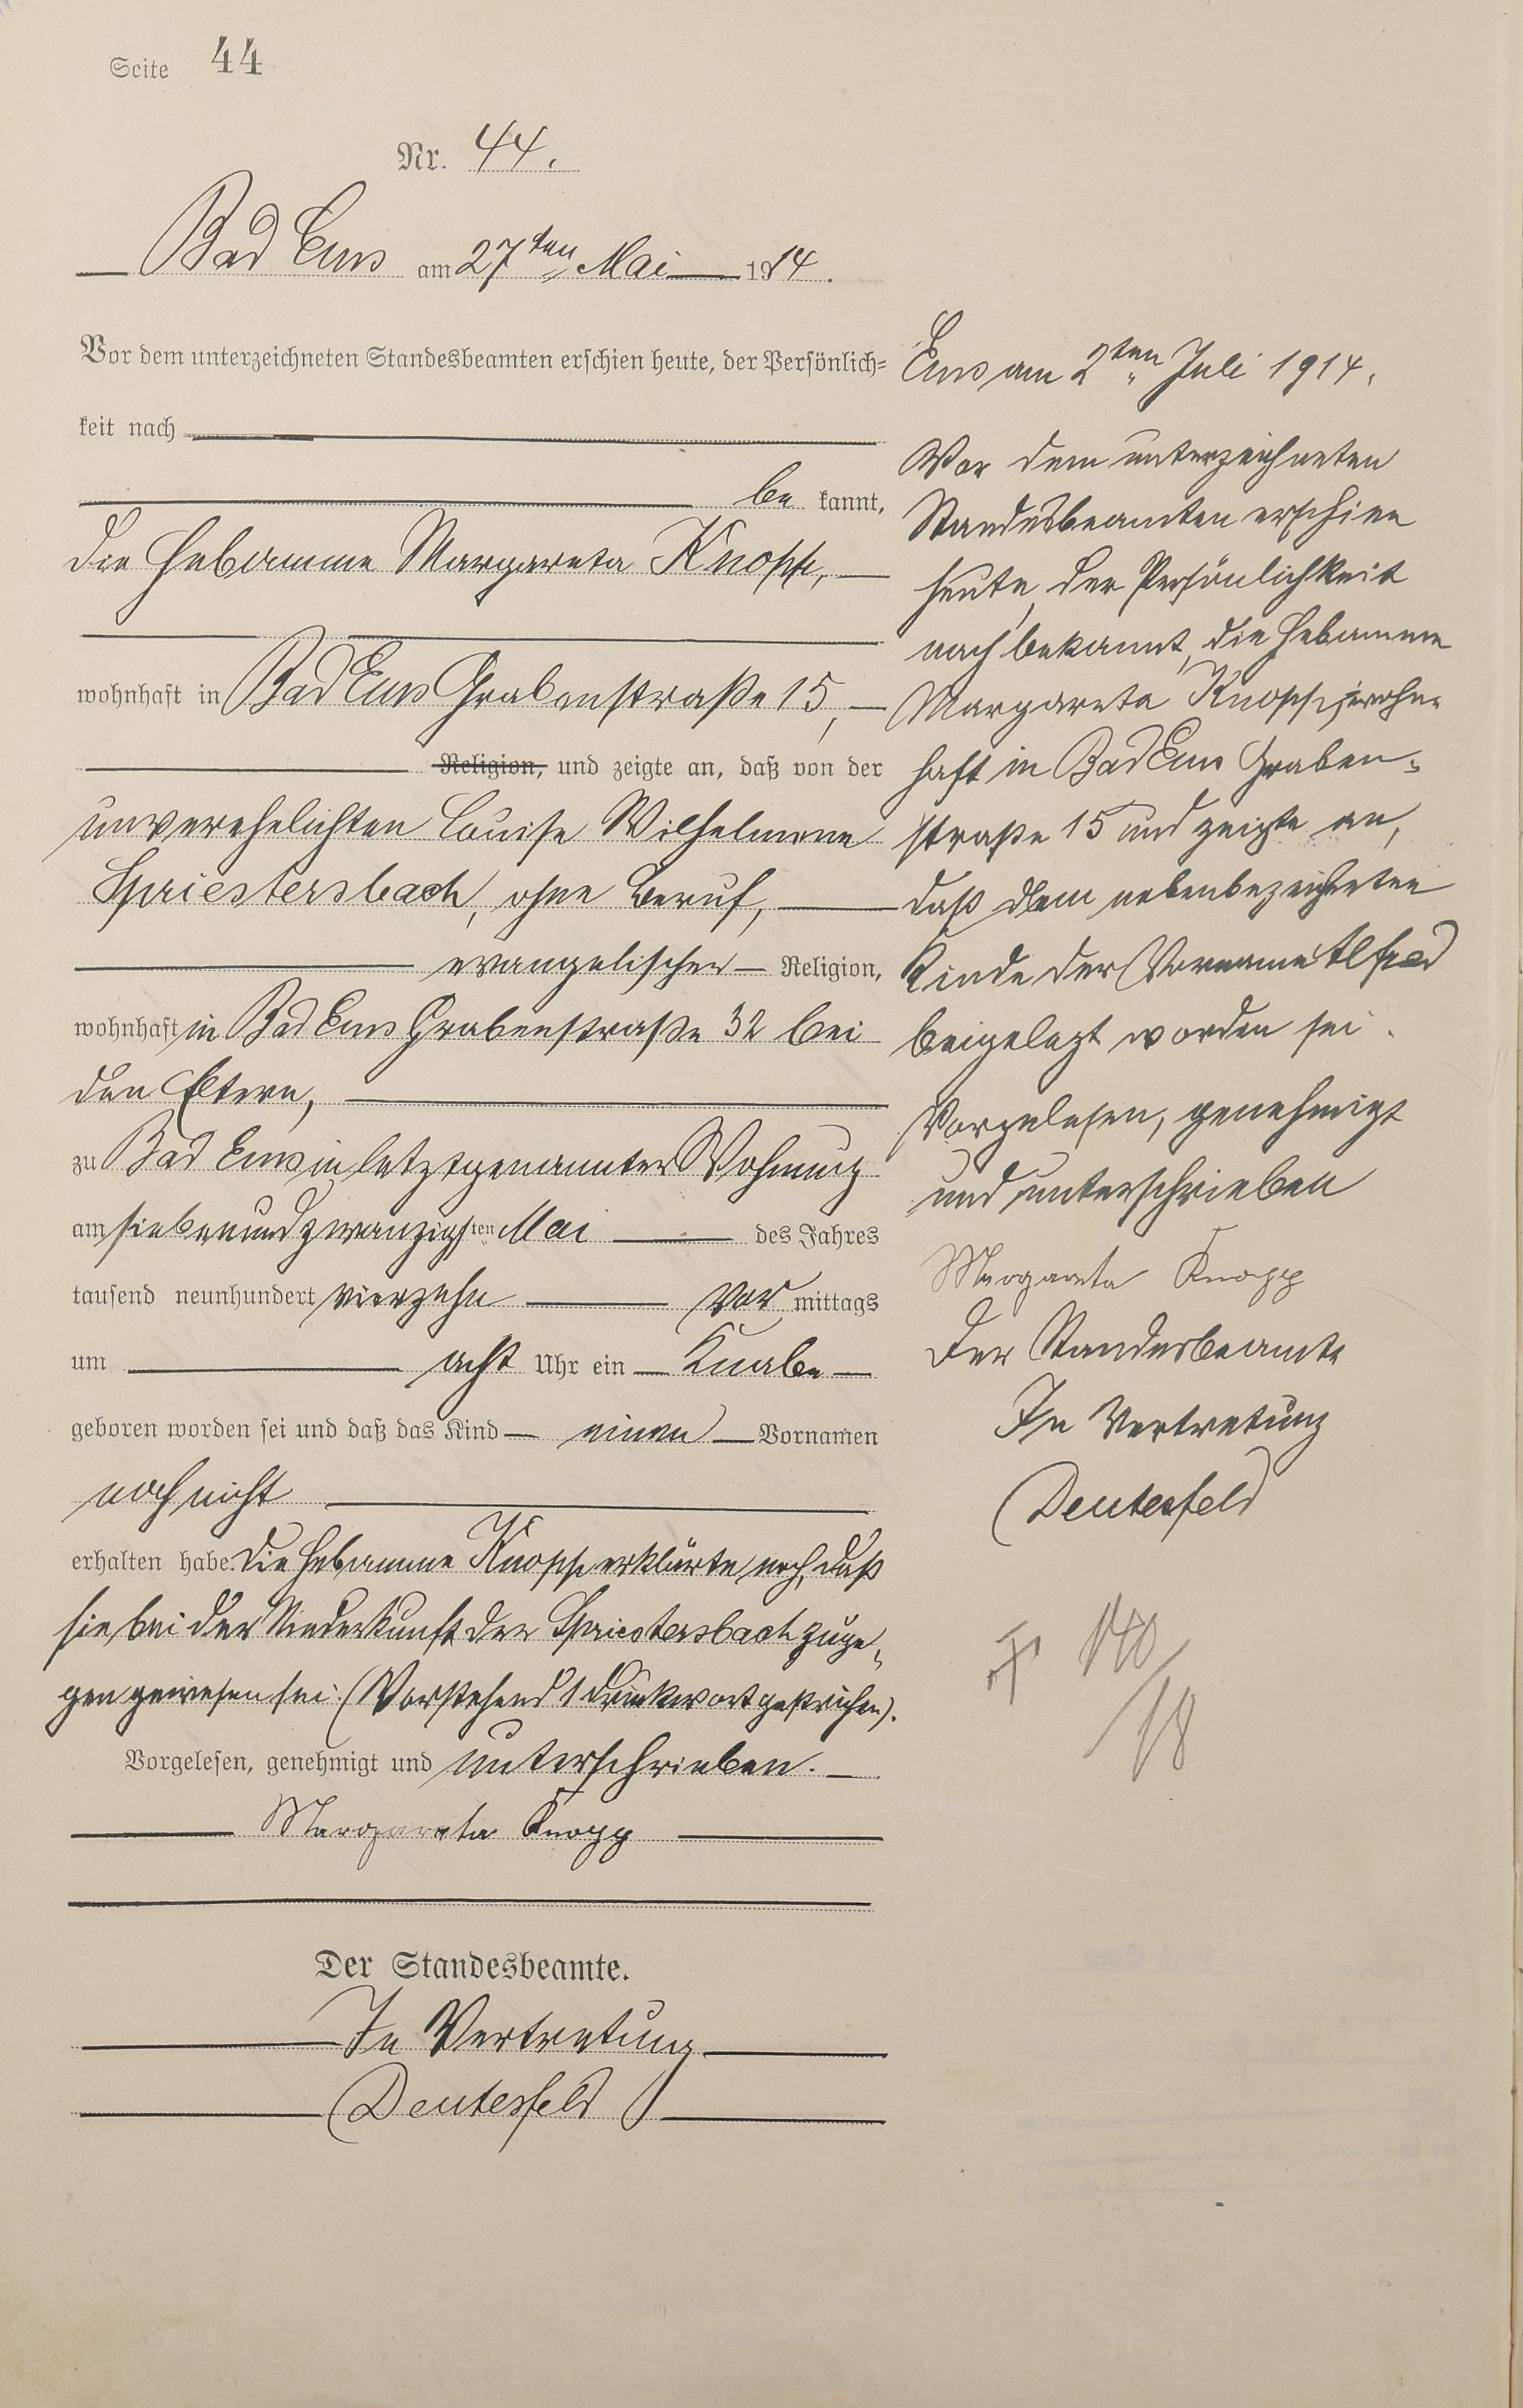 Seite 44
Nr. 44.
Bad Ems am 27ten Mai 1914.
Vor dem unterzeichneten Standesbeamten erschien heute, der Persönlich=
keit nach
be kannt,
die Hebamme Margareta Knopp,
wohnhaft in Bad Ems Grabenstraße 15,
Religion, und zeigte an, daß von der
unverehelichten Louise Wilhelmine
Spriestersbach, ohne Beruf,
evangelischer Religion,
wohnhaft in Bad Ems Grabenstraße 32 bei
den Eltern,
zu Bad Ems in letztgenannter Wohnung
am siebenundzwanzigsten Mai des Jahres
tausend neunhundert vierzehn Vor mittags
um acht Uhr ein Knabe
geboren worden sei und daß das Kind einen Vornamen
noch nicht
erhalten habe. Die Hebamme Knopp erklärte noch, daß
sie bei der Niederkunft der Spriestersbach zuge-
gen gewesen sei. (Vorstehend 1 Druckwort gestrichen).
Vorgelesen, genehmigt und unterschrieben.
Margareta Knopp
Der Standesbeamte.
In Vertretung
Deutesfeld
Ems am 2ten Juli 1914.
Vor dem unterzeichneten
Standesbeamten erschien
heute, der Persönlichkeit
nach bekannt, die Hebamme
Margareta Knopp, wohn-
haft in Bad Ems Graben-
straße 15 und zeigte an,
daß dem nebenbezeichneten
Kinde der Vorname Alfred
beigelegt worden sei.
Vorgelesen, genehmigt
und unterschrieben
Margareta Knopp
Der Standesbeamte
In Vertretung
Deutesfeld
140
18